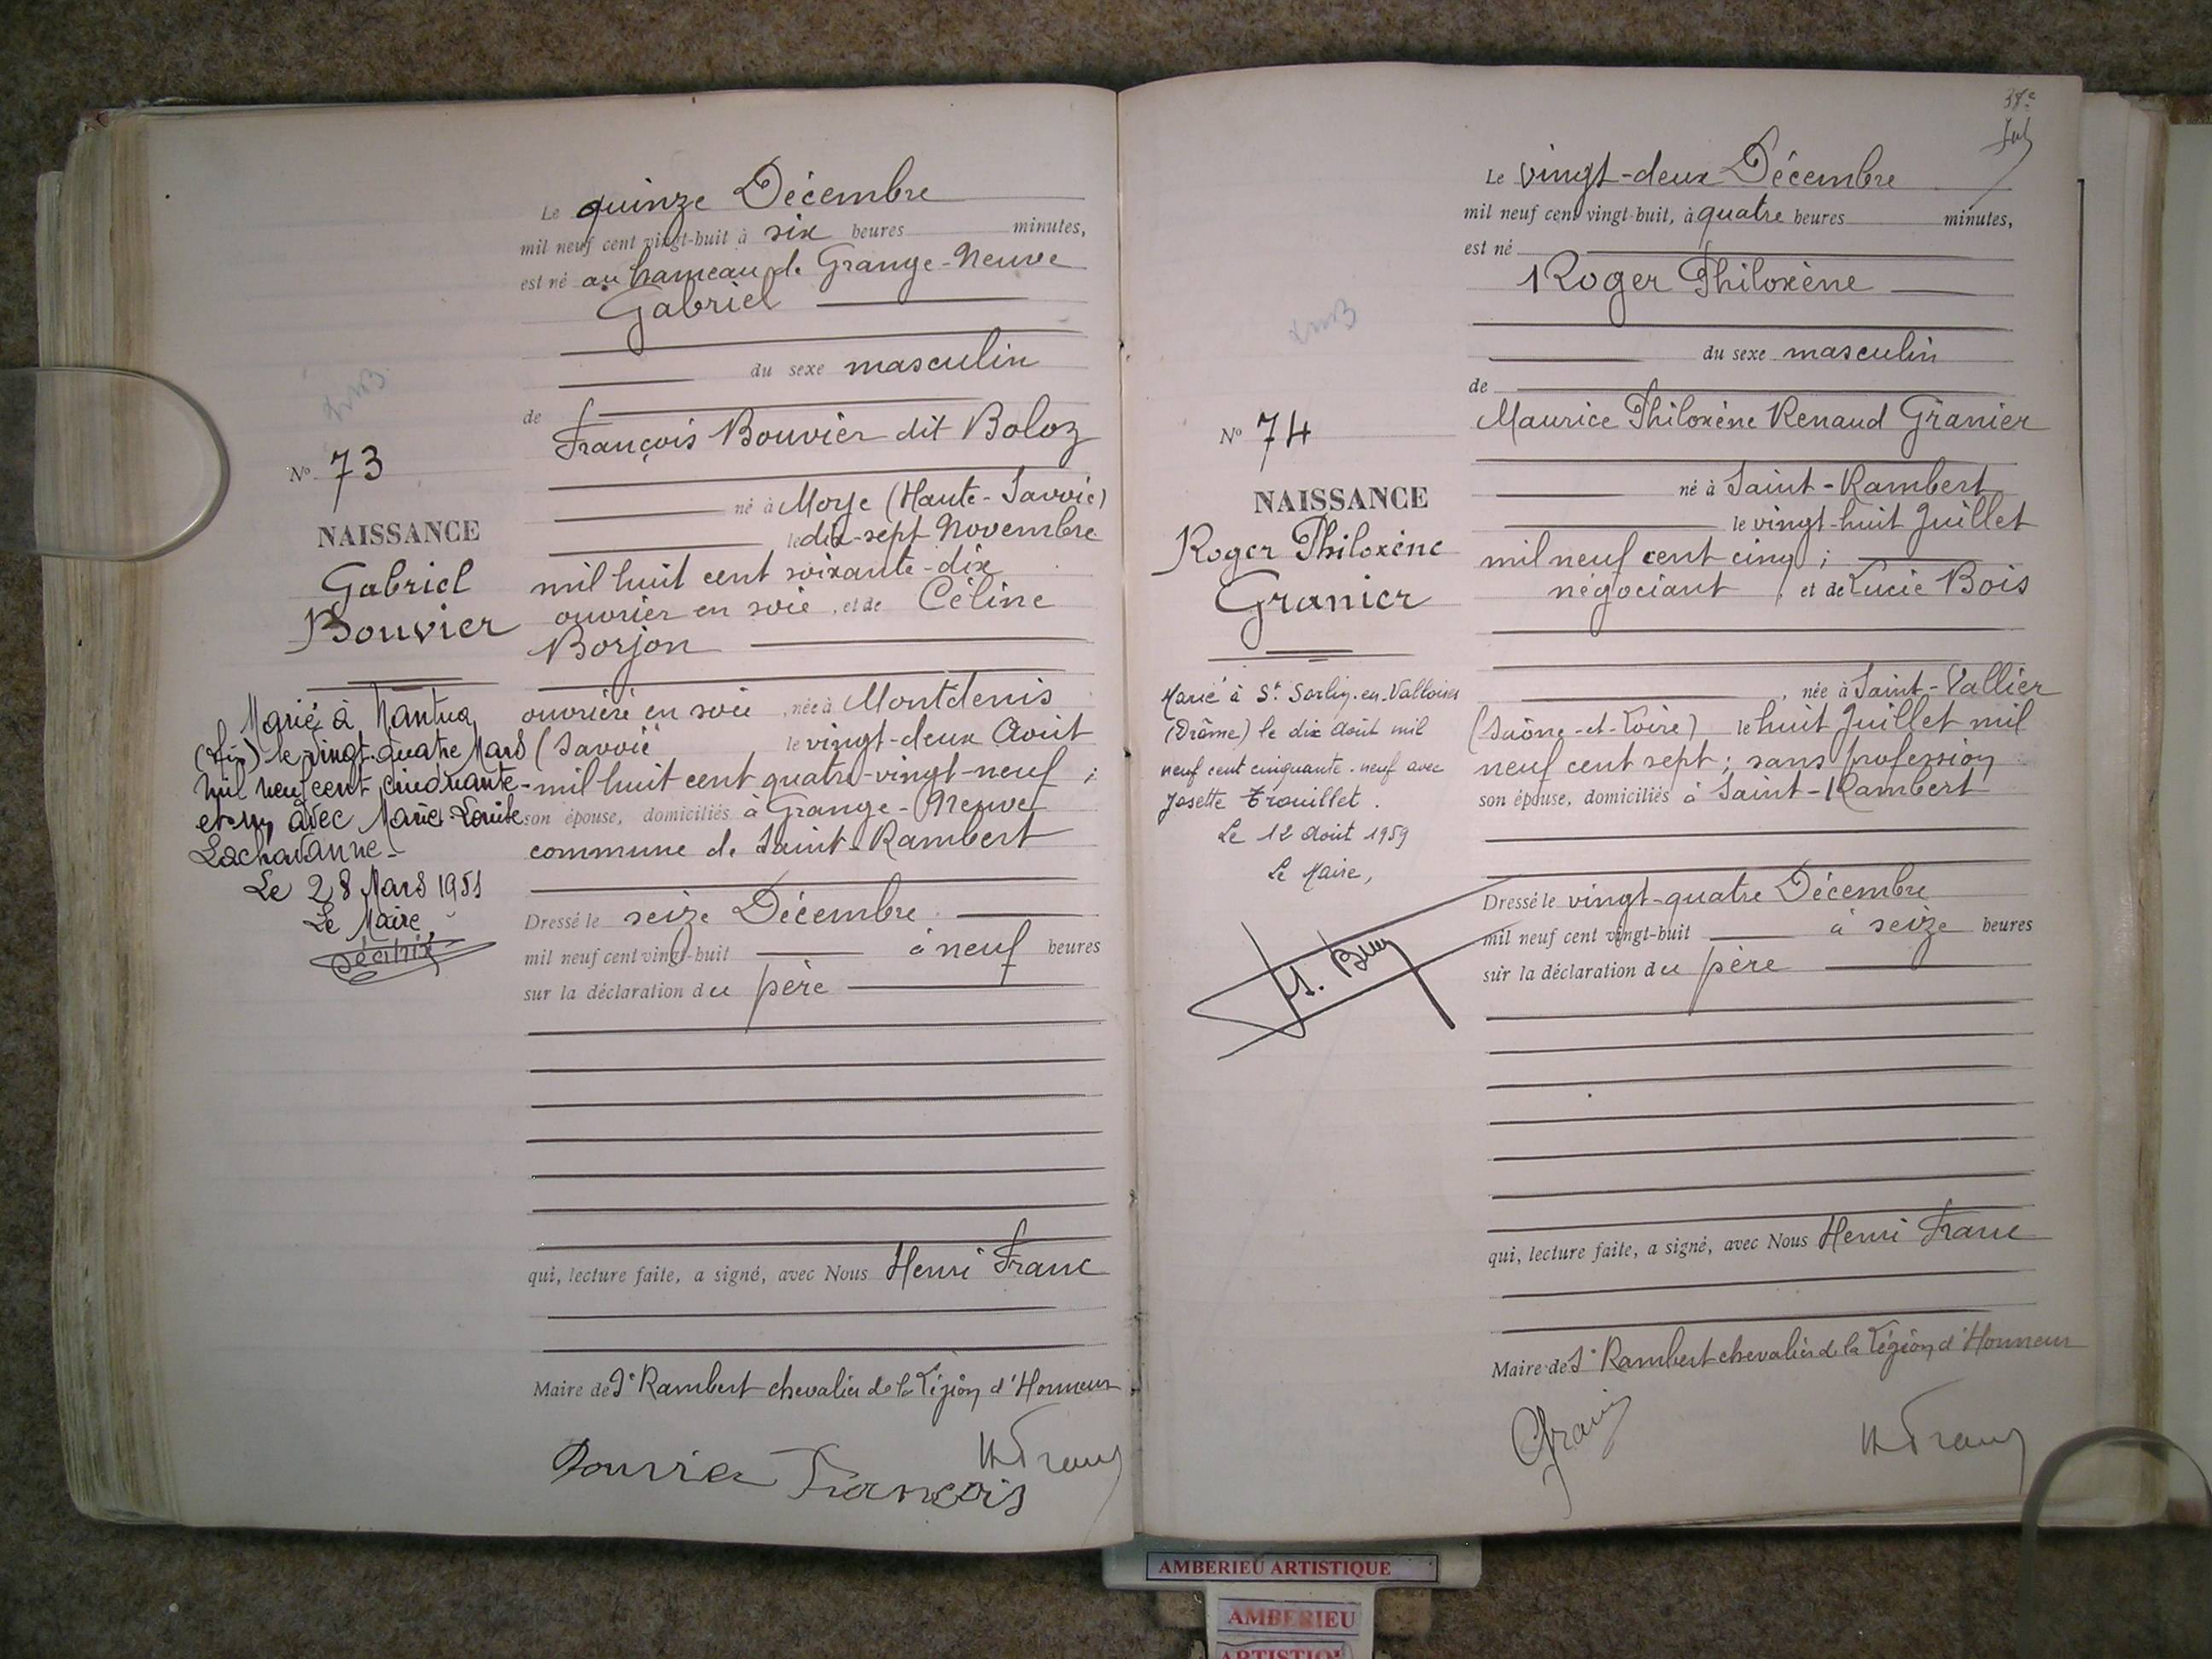 Le quinze Décembre
mil neuf cent vingt-huit à six heures minutes,
est né au hameau de Grange-Neuve
Gabriel
du sexe masculin
de
François Bouvier dit Boloz
né à Moye (Haute-Savoie)
le dix-sept Novembre
mil huit cent soixante-dix
ouvrier en soie, et de Céline
Borjon
ouvrière en soie, née à Montdenis
(Savoie le vingt-deux Août
mil huit cent quatre-vingt-neuf ;
son épouse, domiciliés à Grange-Neuve
commune de Saint-Rambert
Dressé le seize Décembre
mil neuf cent vingt-huit à neuf heures
sur la déclaration du père
qui, lecture faite, a signé, avec Nous Henri Franc
Maire de St Rambert chevalier de la Légion d'Honneur
Bouvier François
HFranc
No 73
NAISSANCE
Gabriel
Bouvier
Marié à Nantua
(Ain) le vingt-quatre Mars
mil neuf cent cinquante-
et un avec Marie-Louise
Lachavanne-
Le 28 Mars 1951
Le Maire,
Le vingt-deux Décembre
mil neuf cent vingt-huit, à quatre heures minutes,
est né
Roger Philoxène
du sexe masculin
de
Maurice Philoxène Renaud Granier
né à Saint-Rambert
le vingt-huit Juillet
mil neuf cent cinq ;
négociant, et de Lucie Bois
, née à Saint-Vallier
(Saône-et-Loire) le huit Juillet mil
neuf cent sept ; sans profession
son épouse, domiciliés à Saint-Rambert
Dressé le vingt-quatre Décembre
mil neuf cent vingt-huit à seize heures
sur la déclaration du père
qui, lecture faite, a signé, avec Nous Henri Franc
Maire de St Rambert chevalier de la Légion d'Honneur
HFranc
No 74
NAISSANCE
Roger Philoxène
Granier
Marié à St Sorlin-en-Valloires
(Drôme) le dix Août mil
neuf cent cinquante-neuf avec
Josette Trouillet.
Le 12 Août 1959
Le Maire,
AMBERIEU ARTISTIQUE
AMBERIEU
ARTISTIQU